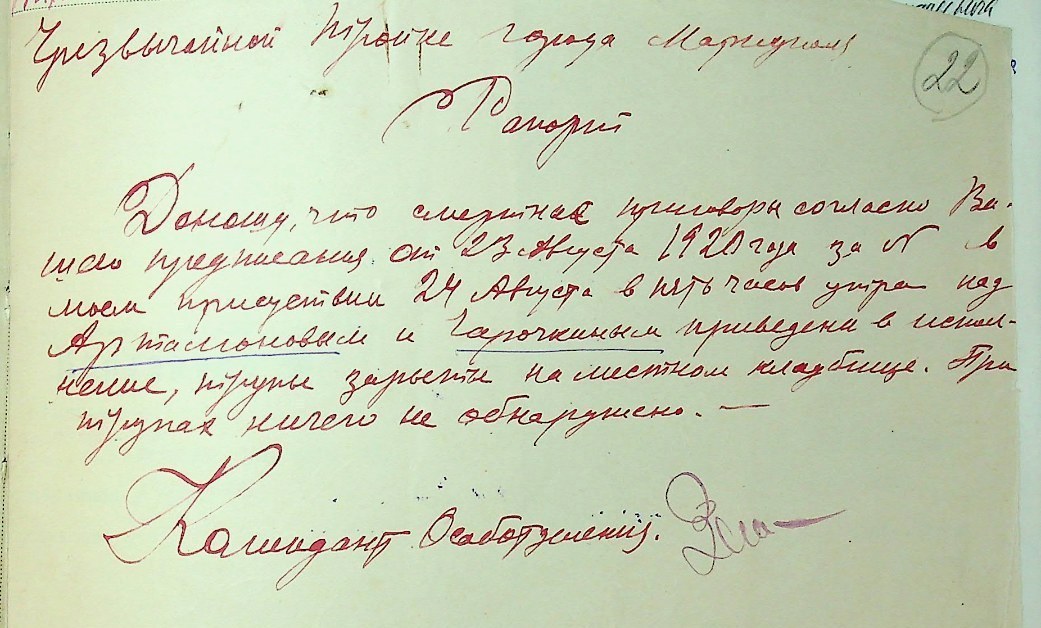 22
Чрезвычайной Тройке города Мариуполя
Рапорт
Доношу, что смертная приговоры согласно Ва-
шего предписания от 23 Августа 1920 года за № в
моем присутствии 24 Августа в пять часов утра над
Артамоновым и Чарочкиным приведени в испол-
нение, трупы зарыты на местном кладбище. При
трупах ничего не обнаружено. —
Комендант Особотделения.